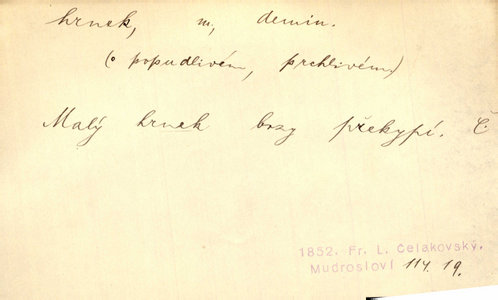 hrnek, m, demin.
(o popudlivém, prchlivém)
Malý hrnek brzy překypí. Č
1852. Fr. L. Čelakovský.
Mudrosloví 114. 19.